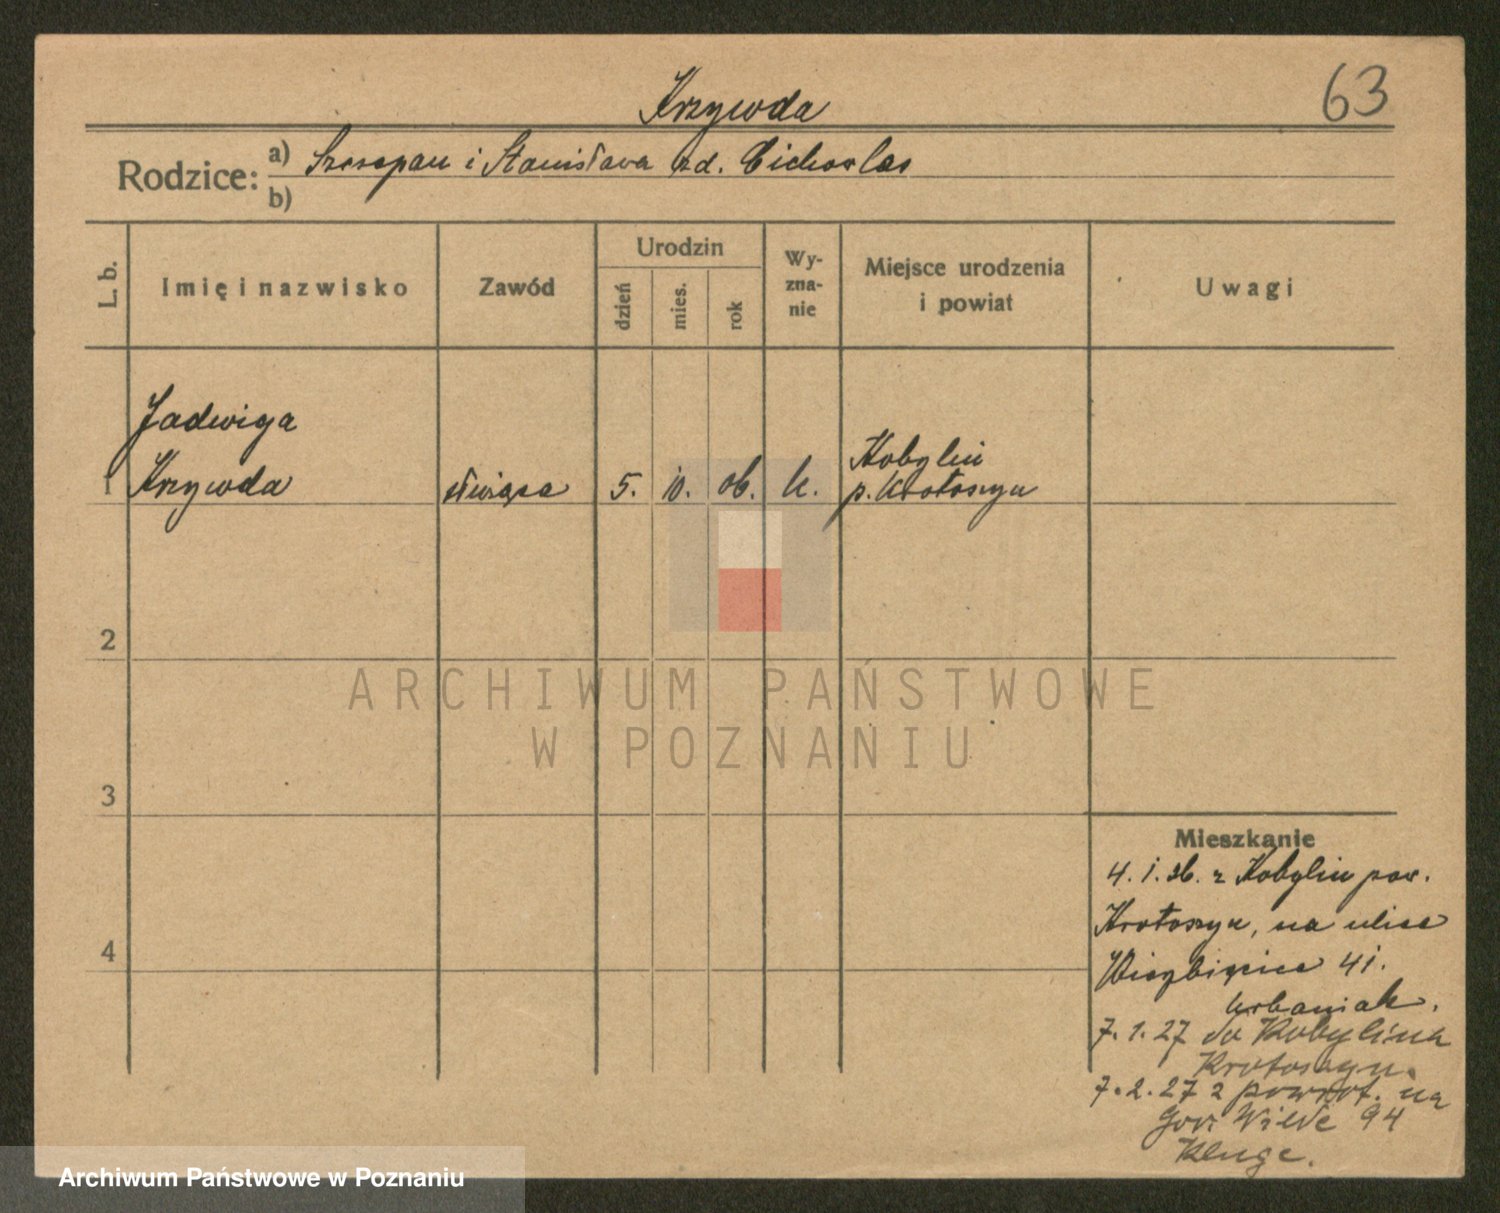 63
Krzywda
Rodzice: a) Szczepan i Stanisława zd. Cichoszlas
b)
L. b.
Imię i nazwisko
Zawód
Urodzin
dzień
mies.
rok
Wy-
zna-
nie
Miejsce urodzenia
i powiat
Uwagi
Jadwiga
1 Krzywda
służąca
5. 10. 06. k.
Kobylin
p. Krotoszyn
2
3
4
ARCHIWUM PAŃSTWOWE
W POZNANIU
Mieszkanie
4. 1. 26. z Kobylin pow.
Krotoszyn, na ulice
Wierzbięcice 41.
Urbaniak.
7. 1. 27 do Kobylina
Krotoszyn.
7. 2. 27 z powrot. na
Gór. Wilde 94
Kluge.
Archiwum Państwowe w Poznaniu